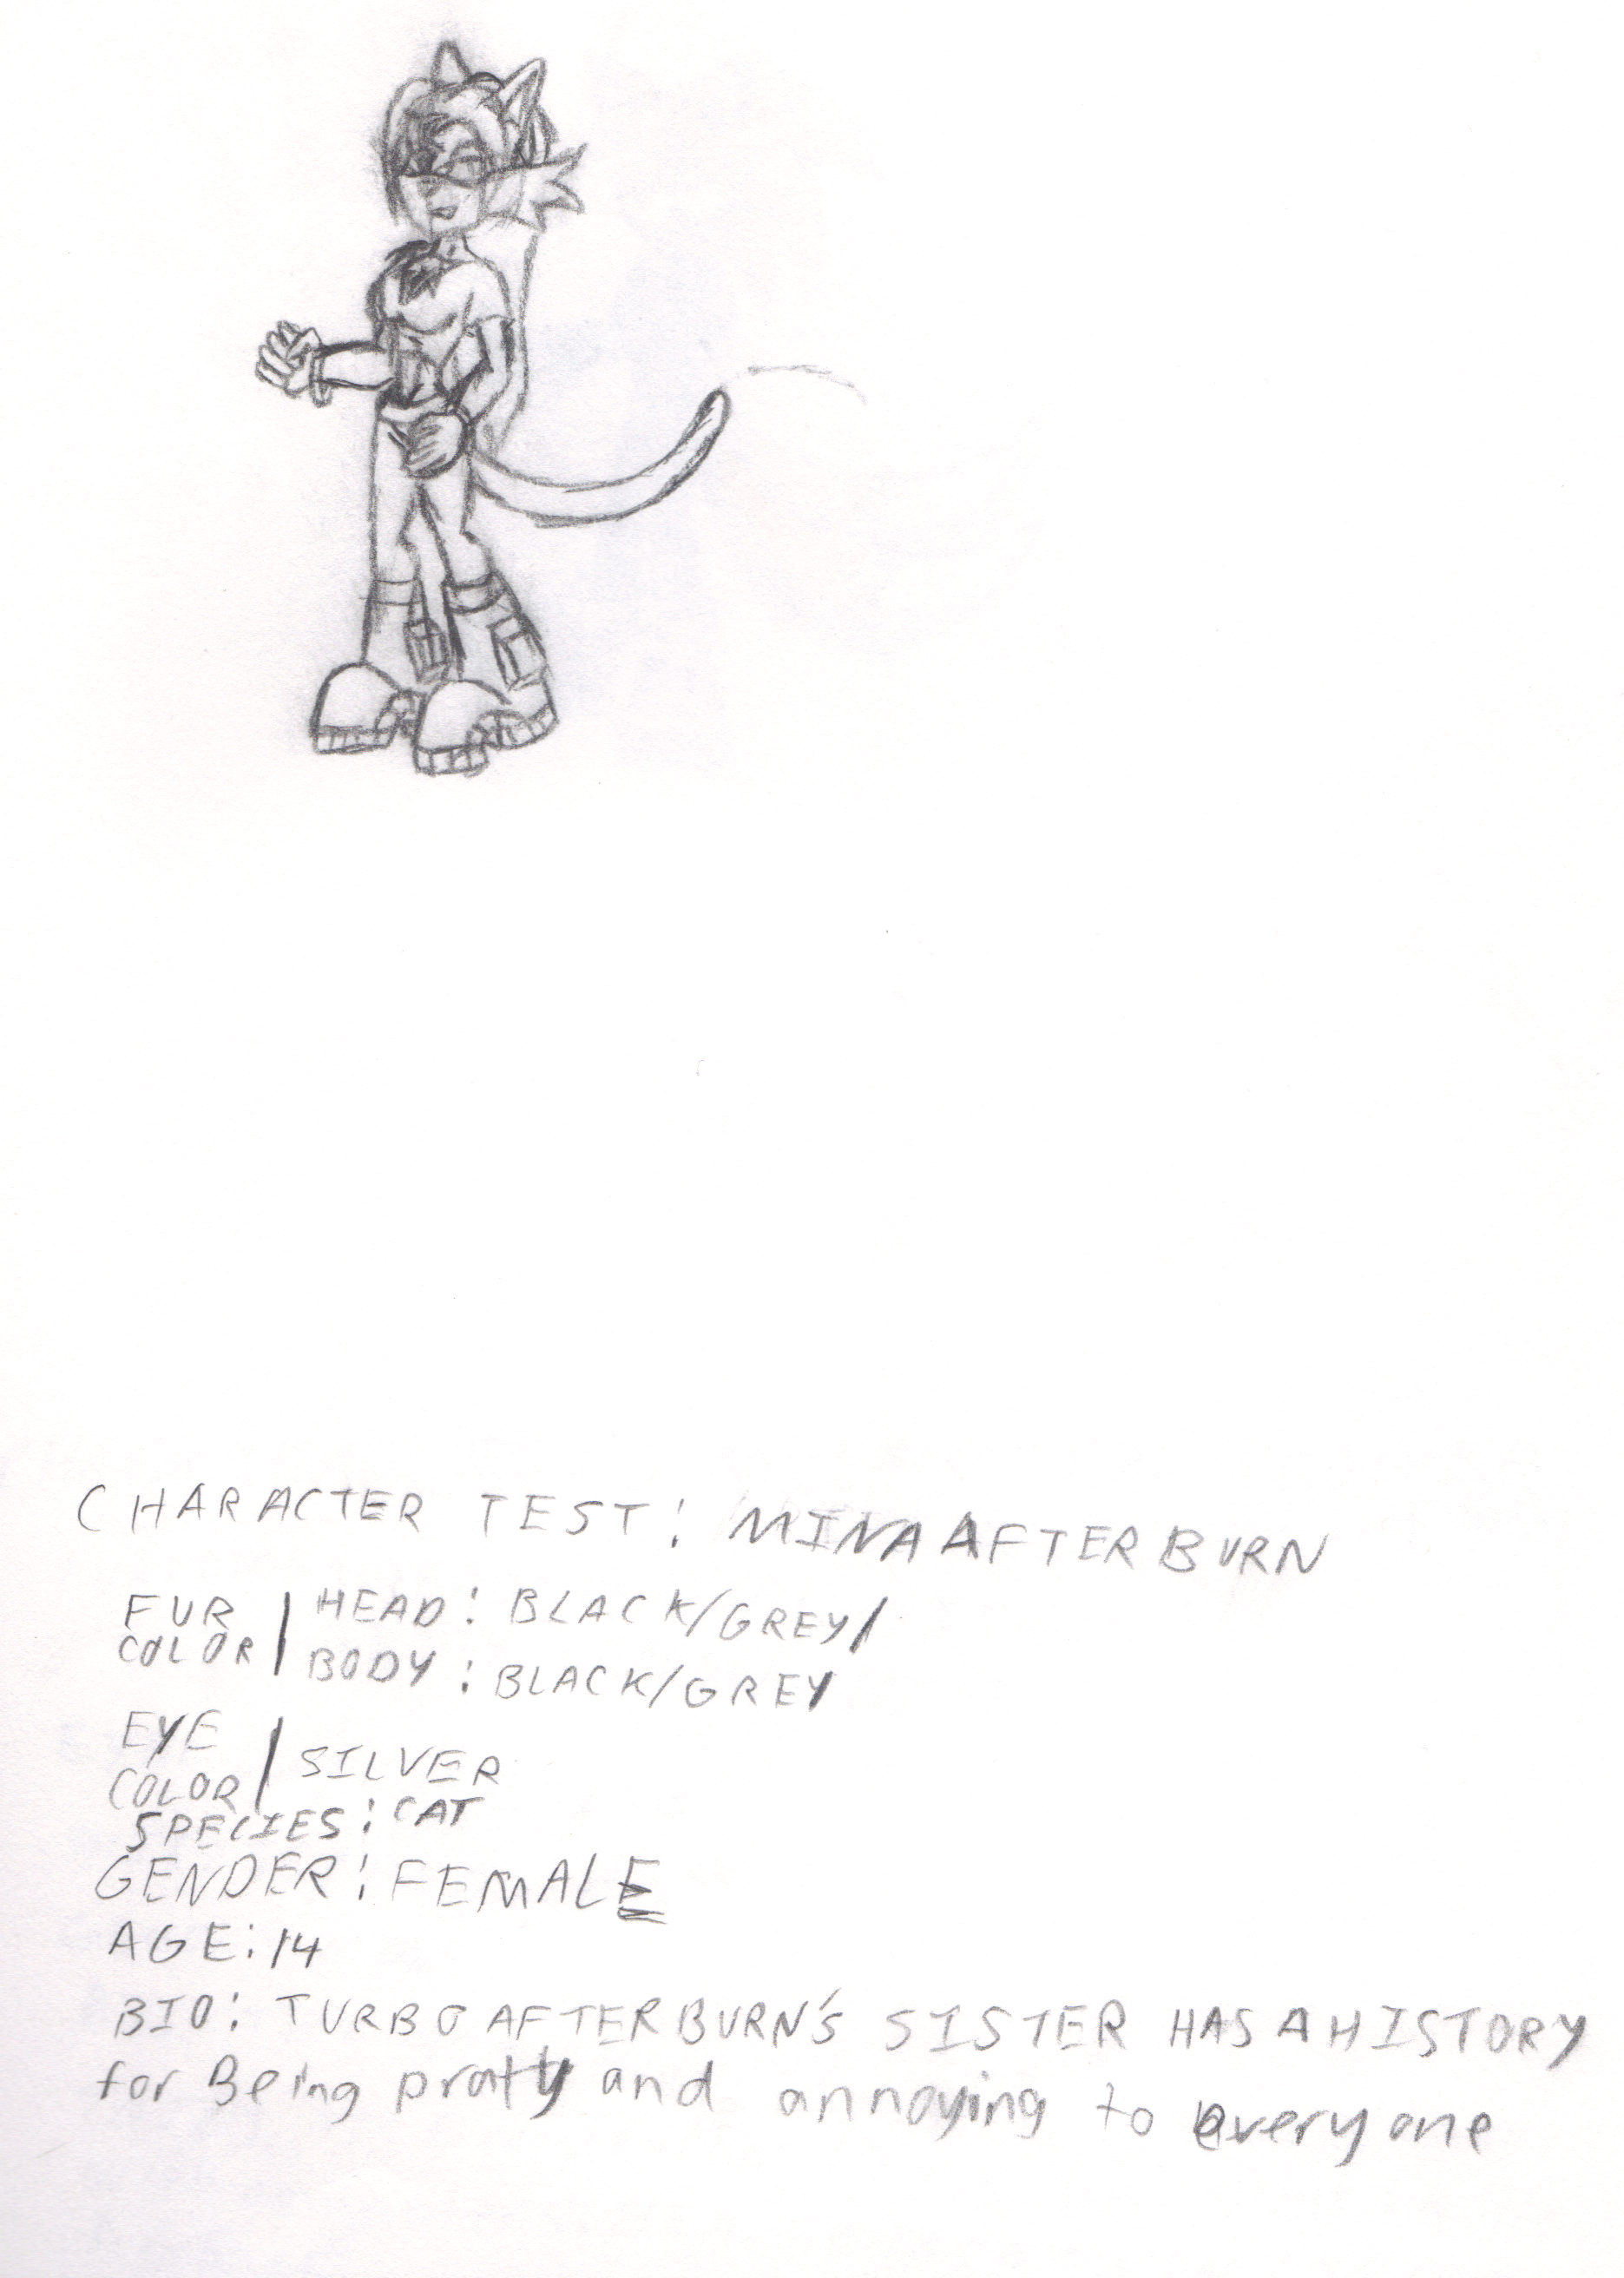 CHARACTER TEST: MINA AFTERBURN
FUR COLOR | HEAD: BLACK/GREY/
BODY: BLACK/GREY
EYE COLOR | SILVER
SPECIES: CAT
GENDER: FEMALE
AGE: 14
BIO: TURBO AFTERBURN'S SISTER HAS A HISTORY
for Being pratty and annoying to everyone